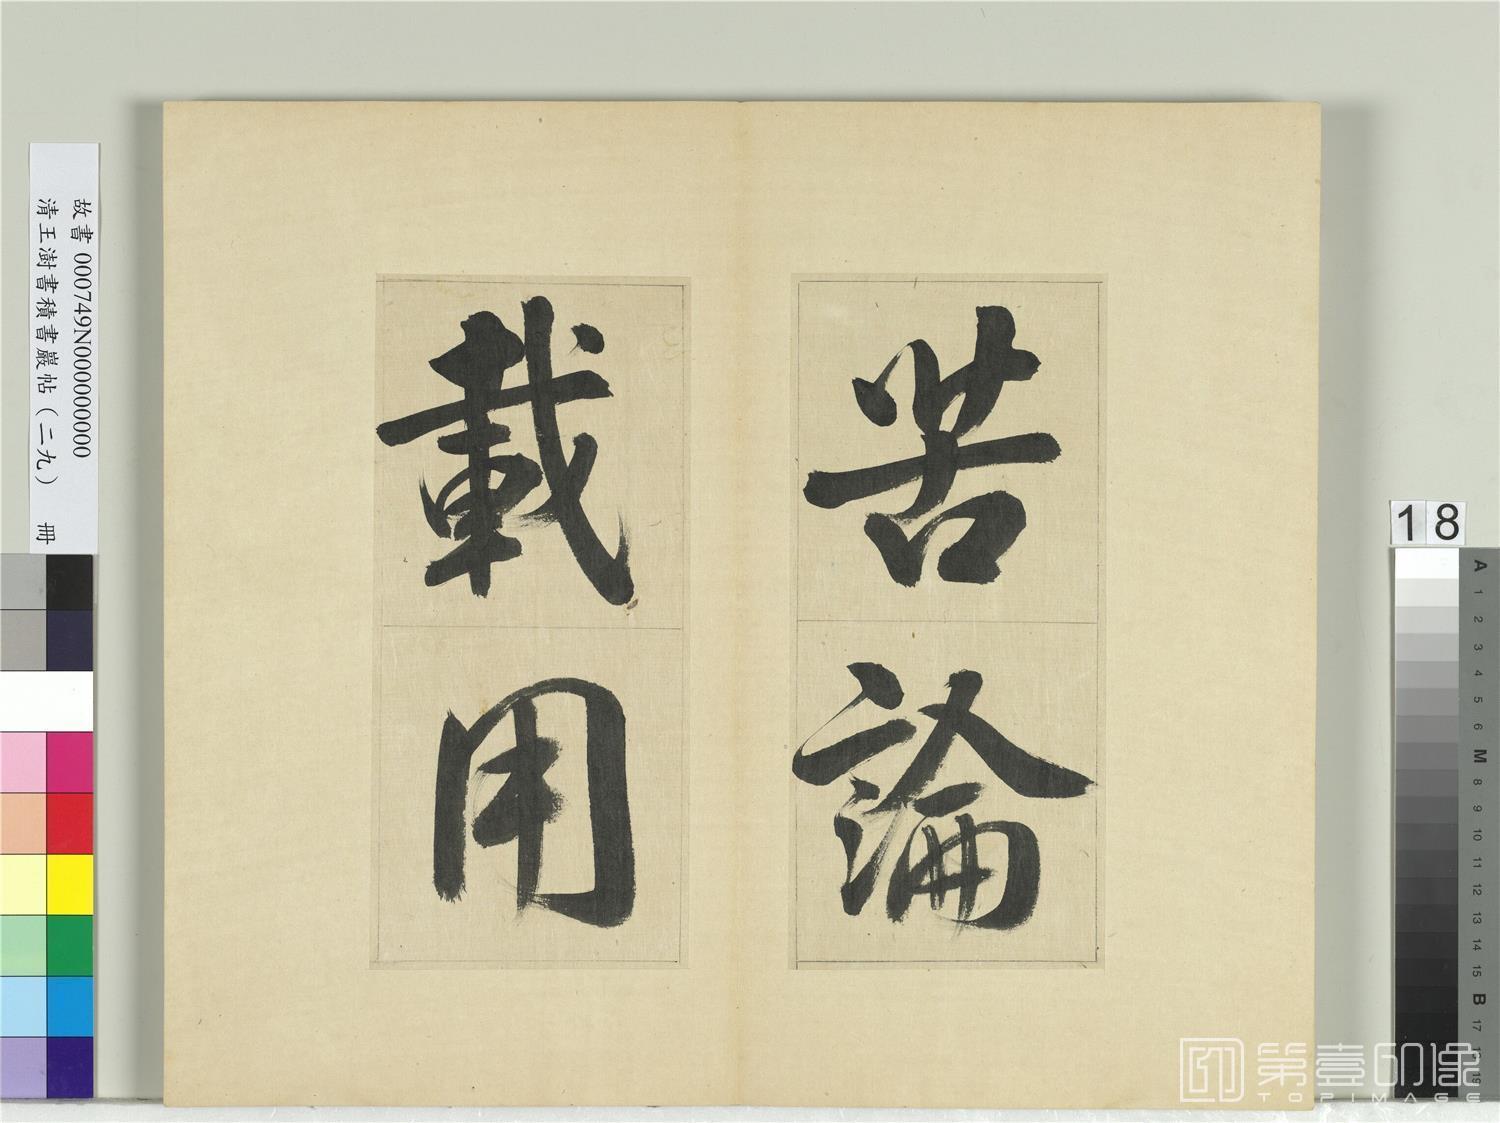 苦論
載用
故書 000749N000000000
清王澍書積書巖帖(二九) 冊
18
A
1
2
3
4
5
6
M
8
9
10
11
12
13
14
15
B
17
18
19
第壹印像
TOPIMAGE